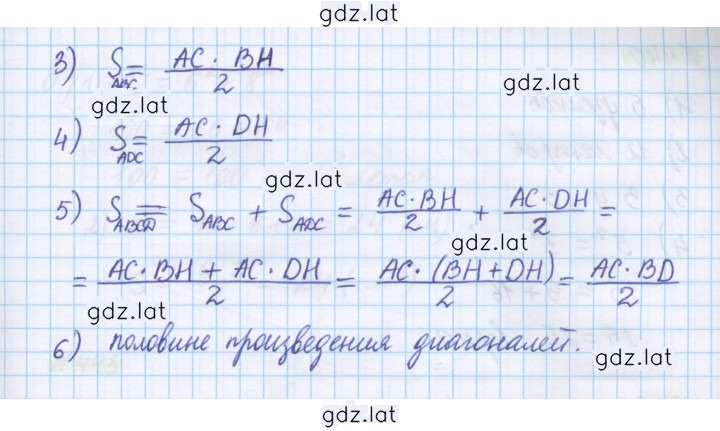 gdz.lat
3) S_ABC = AC · BH / 2
gdz.lat gdz.lat
4) S_ADC = AC · DH / 2
gdz.lat
5) S_ABCD = S_ABC + S_ADC = AC·BH / 2 + AC·DH / 2 =
gdz.lat
= AC·BH + AC·DH / 2 = AC·(BH+DH) / 2 = AC·BD / 2
gdz.lat
6) половине произведения диагоналей.
gdz.lat
gdz.lat